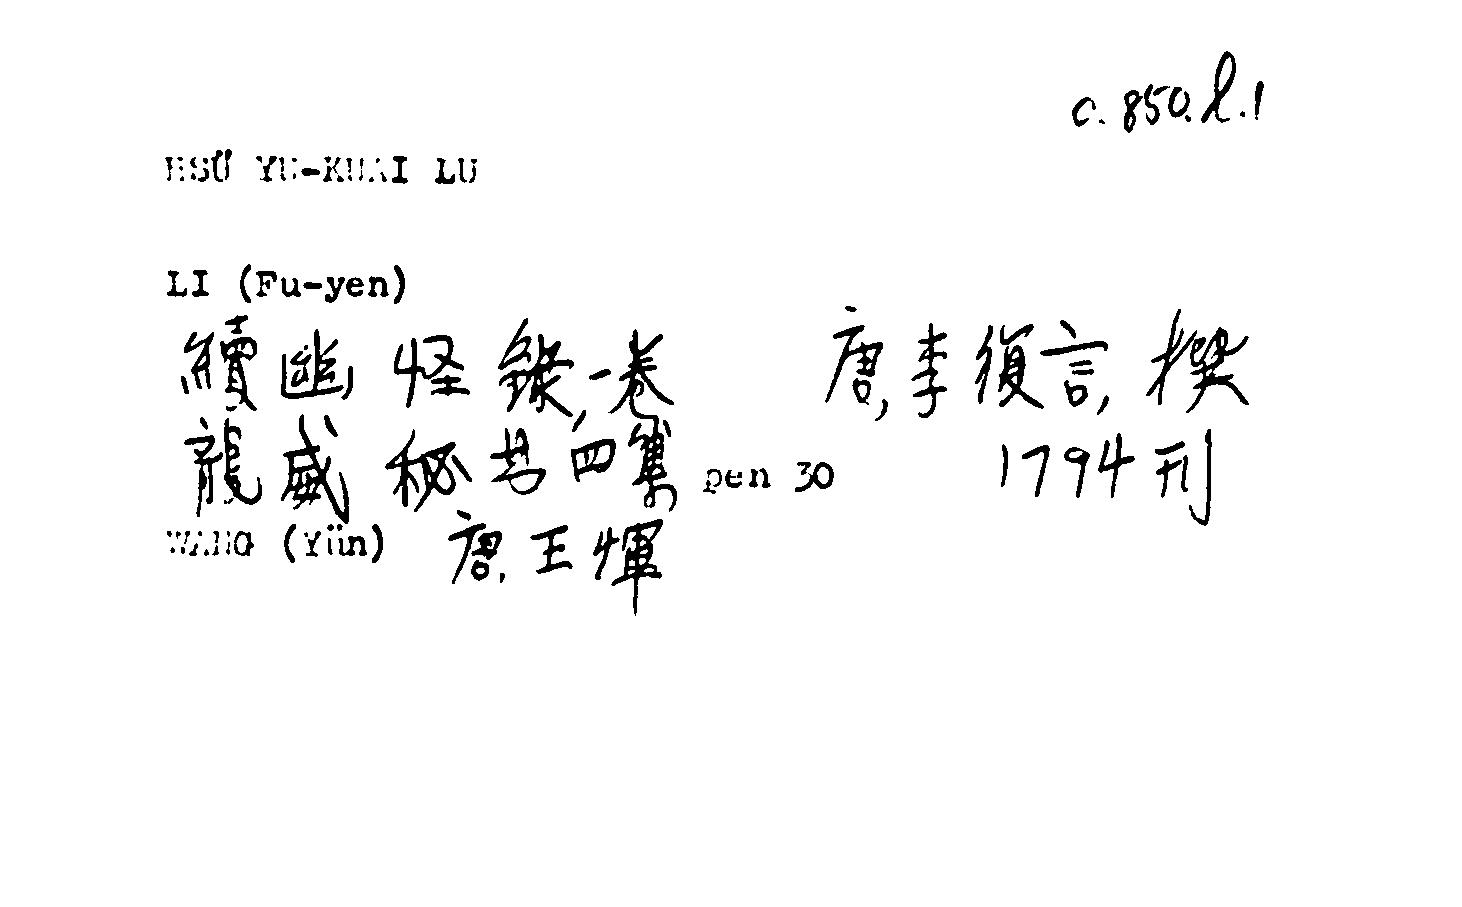 c.850.l.1
HSÜ YU-KUAI LU
LI (Fu-yen)
續幽怪錄,一卷 唐,李復言,撰
龍威秘书四集, pen 30 1794刊
WANG (Yün) 唐,王惲